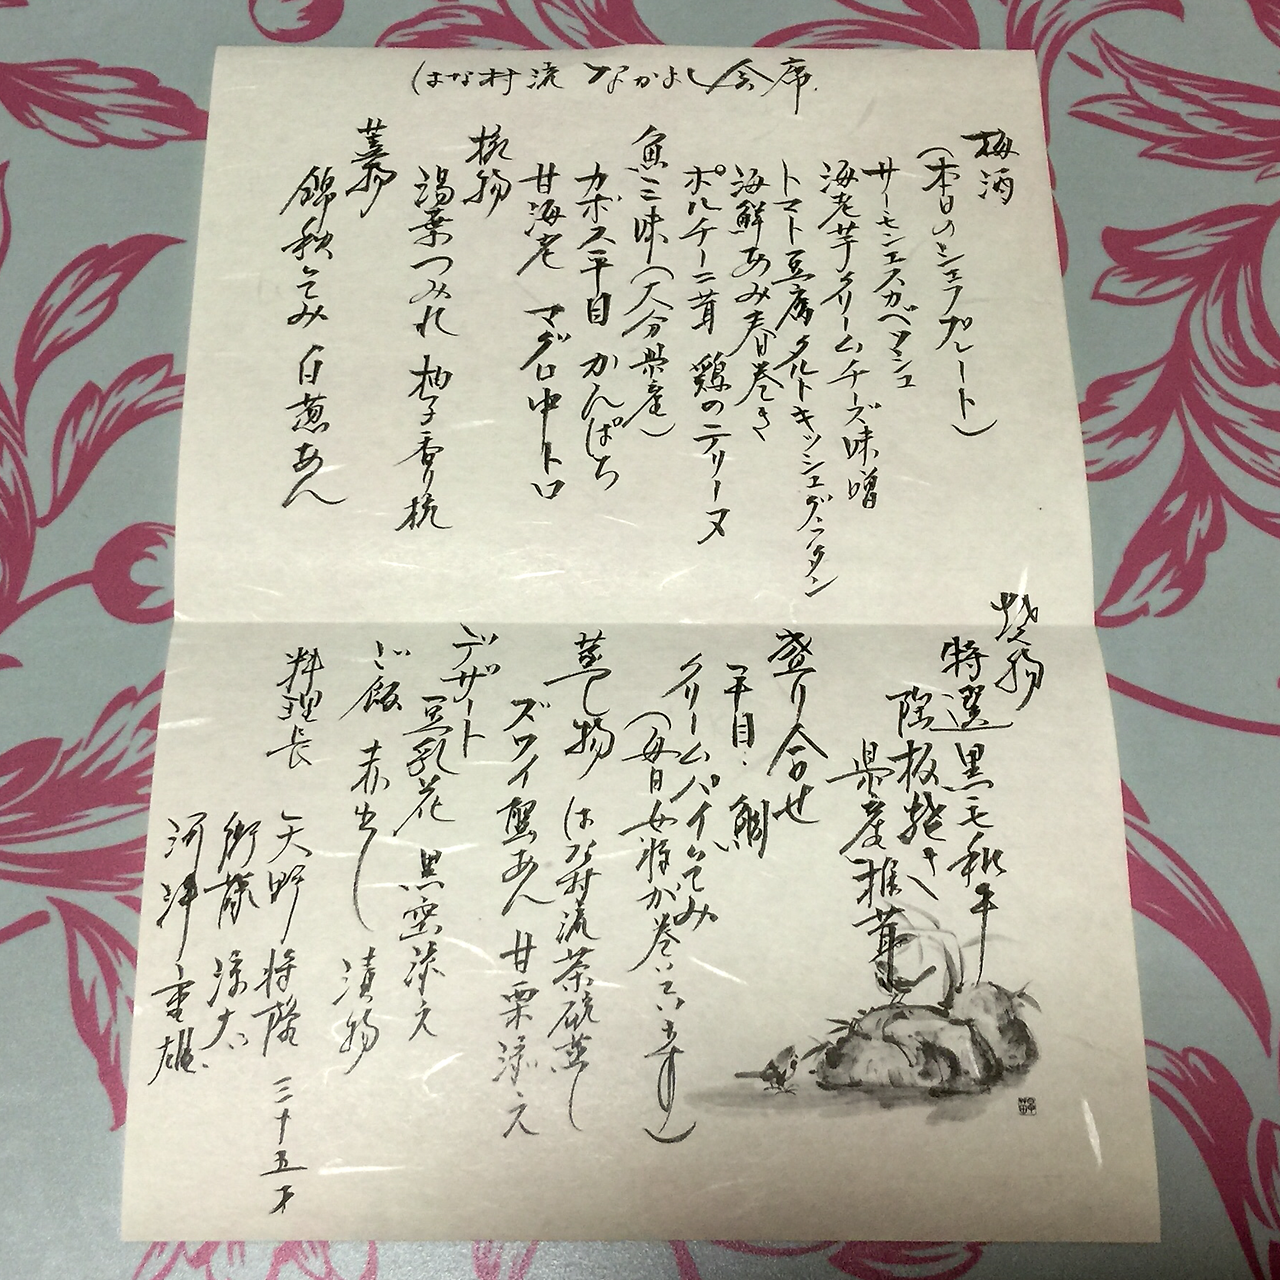 はな村流 なかよし会席
梅酒
(本日のシェフプレート)
サーモンエスカベッシュ
海老芋クリームチーズ味噌
トマト豆腐タルトキッシュグラタン
海鮮あみ春巻き
ポルチーニ茸 鶏のテリーヌ
魚三味(大分県産)
カボス平目 かんぱち
甘海老 マグロ中トロ
椀物
湯葉つみれ 柚子香り
蓋物
錦秋包み 白葱あん
焼物
特選黒毛和牛
陶板焼き
県産椎茸
盛り合せ
平目、鯛
クリームパイ包み
(毎日女将が巻いています)
蒸し物 はな村流茶碗蒸し
ズワイ蟹あん 甘栗添え
デザート
豆乳花 黒蜜添え
ご飯 赤出し 漬物
料理長
矢野 将隆 三十五才
衛藤 涼太
河津 重雄